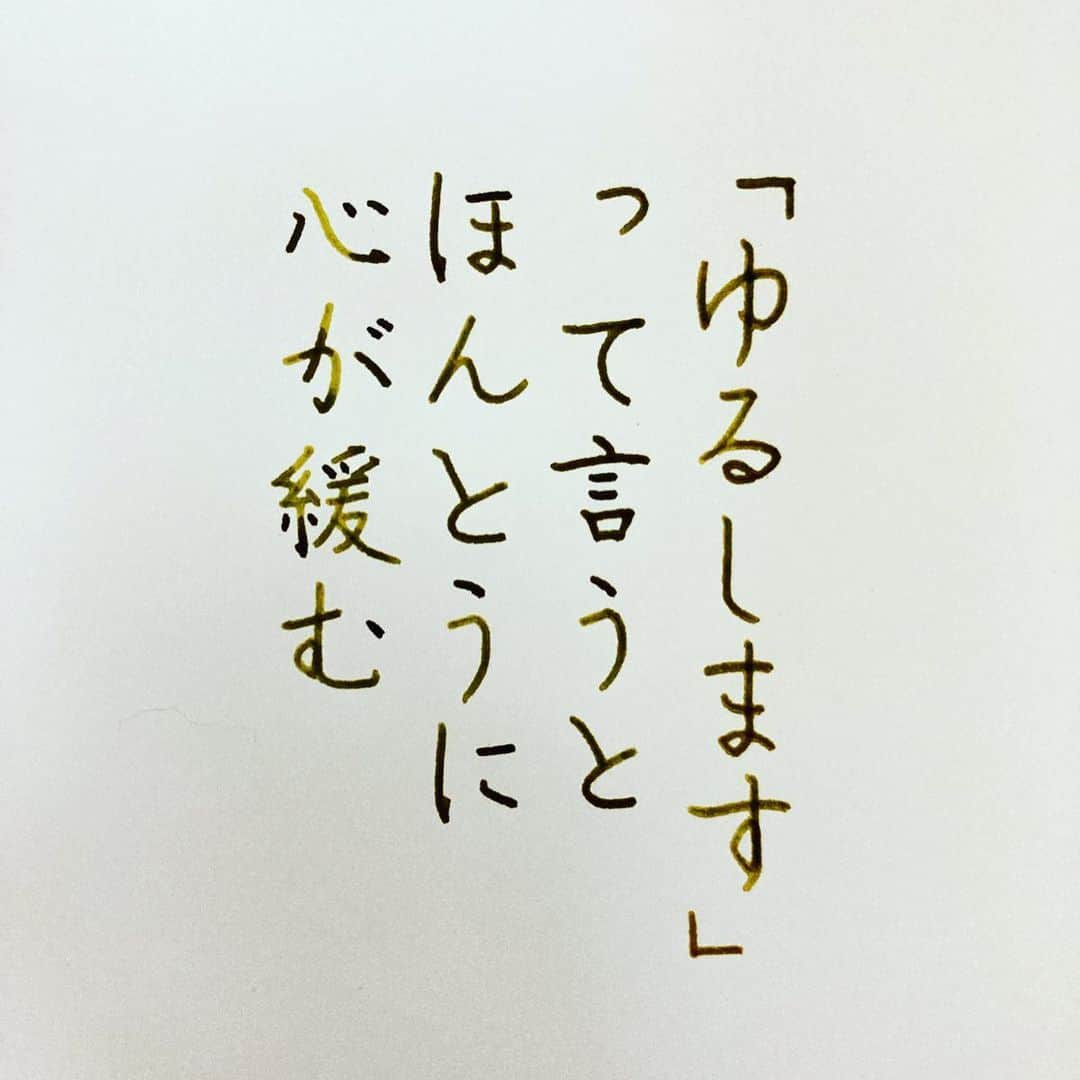 「ゆるします」
って言うと
ほんとうに
心が緩む